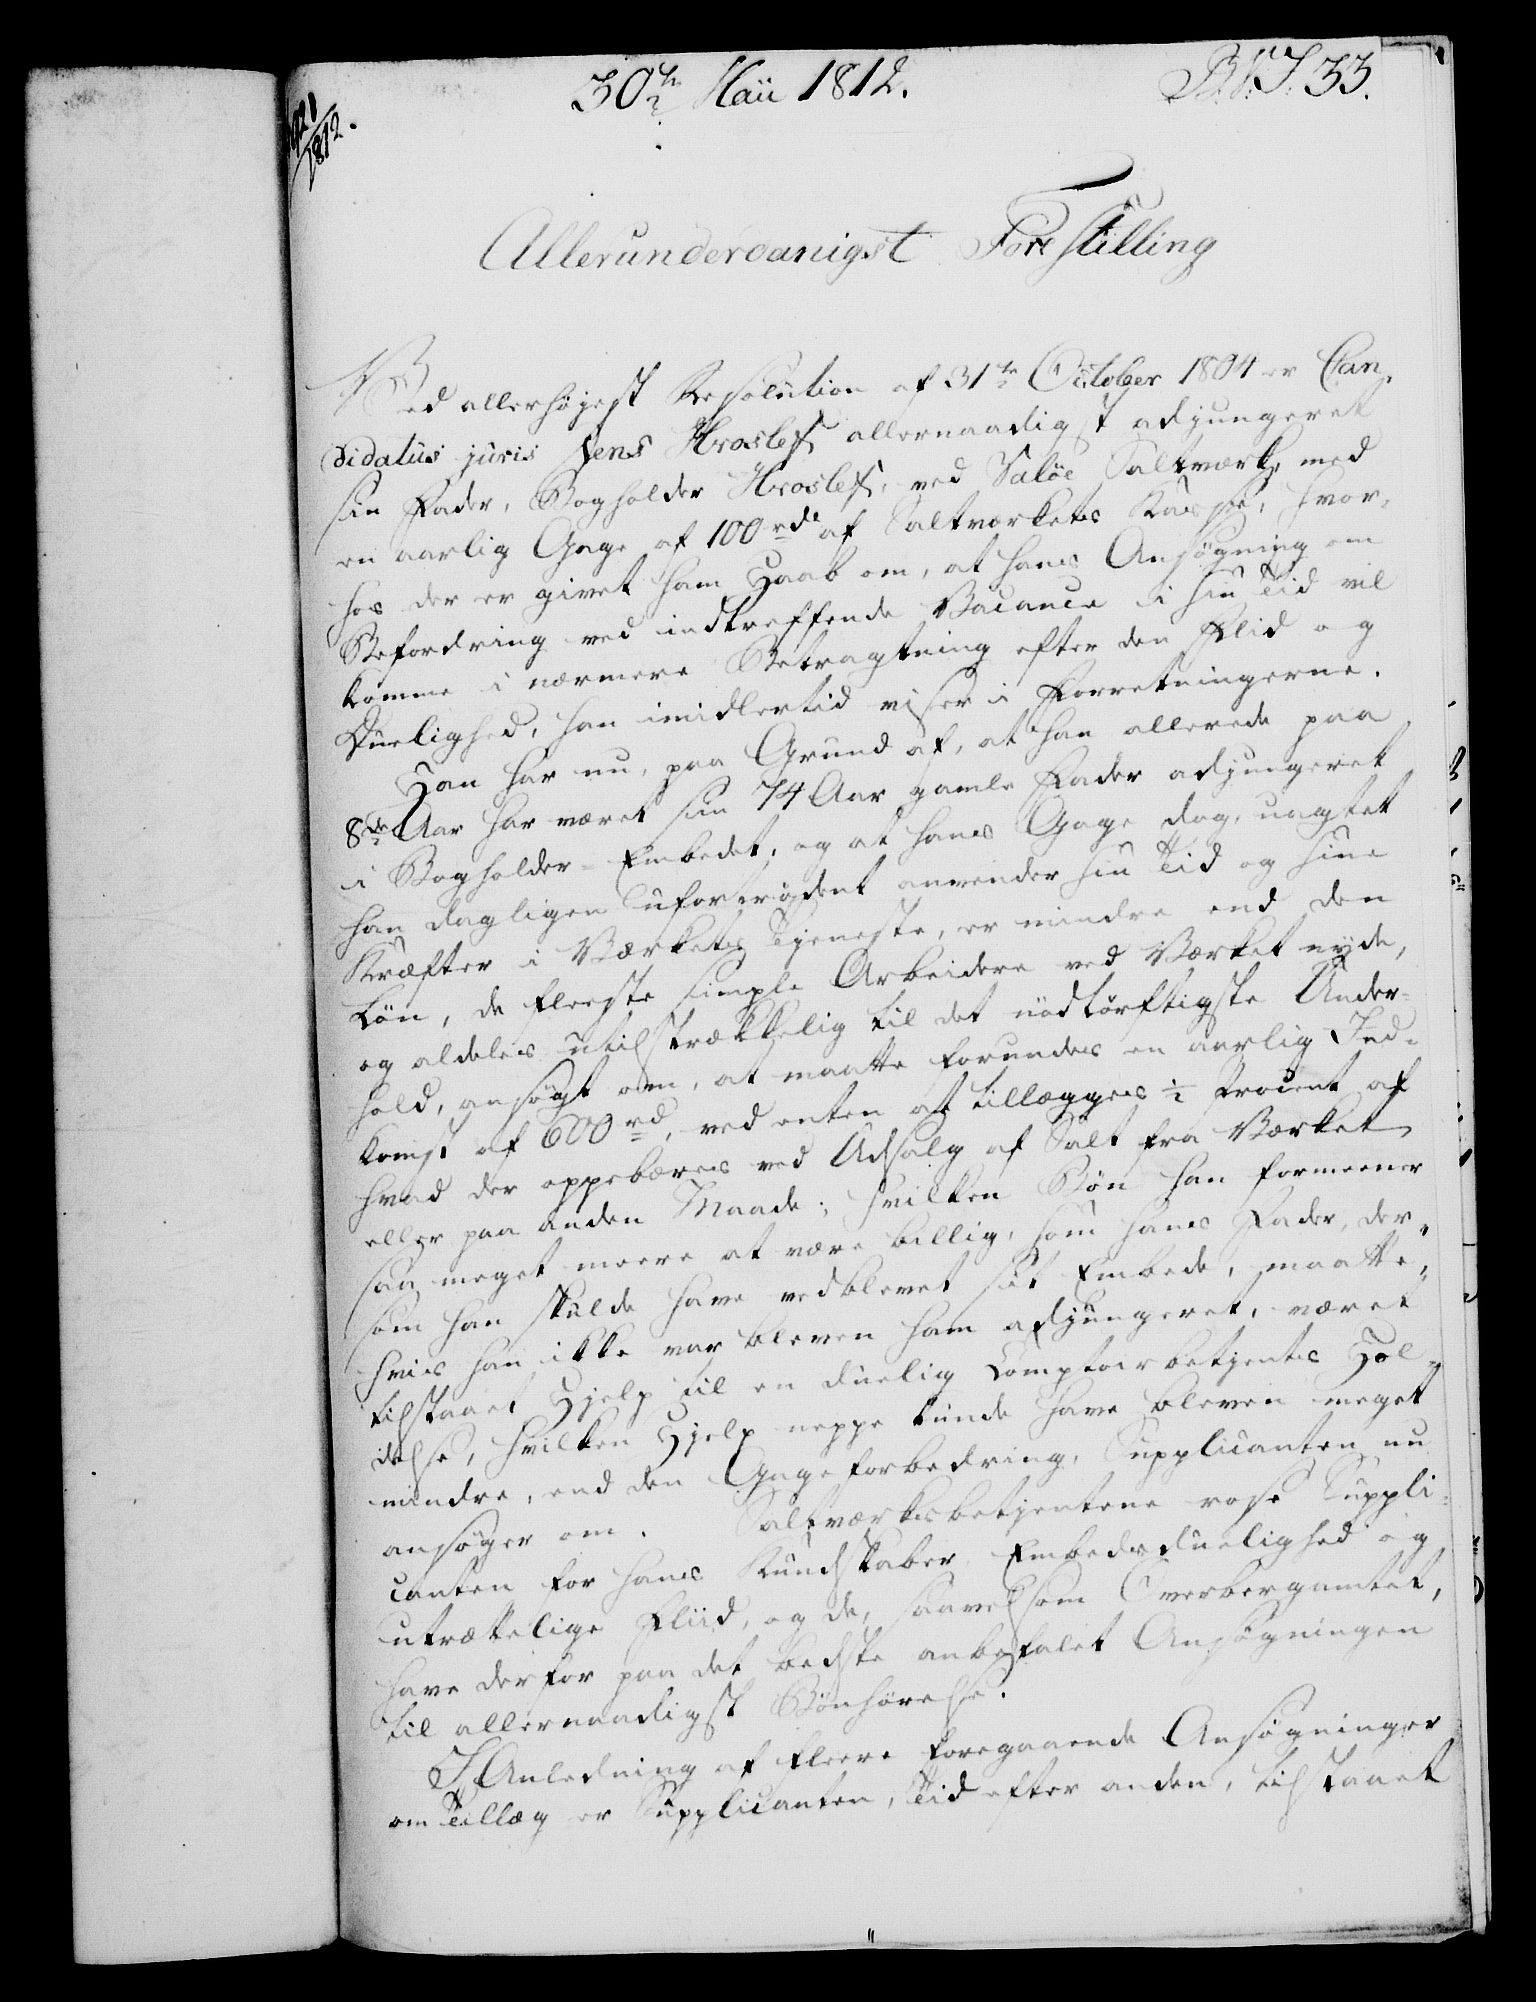 30te Maii 1812.
B.V.J. 33.
921/1812.
Allerunderdanigst Forestilling
Ved allerhøjest Resolution af 31te October 1804 er Can-
didatus juris Jens allernaadigst adjungeret
sin Fader, Bogholder ved Valöe Saltværk, med
en aarlig Gage af 100 rdl af Saltværkets Kasse, hvor-
hos der er givet ham Haab om, at hans Ansøgning om
Befordring ved indtreffende Vacance i sin Tid vil
komme i nærmere Betragtning efter den Flid og
Duelighed, han imidlertid viser i Forretningerne.
Han har nu, paa Grund af, at han allerede paa
8de Aar har været sin 74 Aar gamle Fader adjungeret
i Bogholder-Embedet, og at hans Gage dog, uagtet
han dagligen ufortrødent anvender sin Tid og sine
Kræfter i Værkets Tjeneste, er mindre end den
Løn, de fleeste simple Arbeidere ved Værket nyde,
og aldeles utilstrækkelig til det nødtørftigste Under-
hold, ansøgt om, at maatte forundes en aarlig Ind-
komst af 600 rd, ved enten at tillægges ½ Procent af
hvad der oppebæres ved Udsalg af Salt fra Værket
eller paa anden Maade; hvilken Bøn han formeener
saa meget meere at være billig, som hans Fader, der-
som han skulde have vedblevet sit Embede, maatte,
hvis han ikke var bleven ham adjungeret, været
tilstaaet Hjelp til en duelig Comptoirbetjents Hol-
delse, hvilken Hjelp neppe kunde have bleven meget
mindre, end den Gageforbedring, Supplicanten nu
ansøger om. Saltværksbetjentene rose Suppli-
canten for hans Kundskaber, Embedsduelighed og
utrættelige Fliid, og de, saavelsom Overbergamtet,
have derfor paa det bedste anbefalet Ansøgningen
til allernaadigst Bønhørelse.
I Anledning af fleere foregaaende Ansøgninger
om Tillæg er Supplicanten, Tid efter anden, tilstaaet